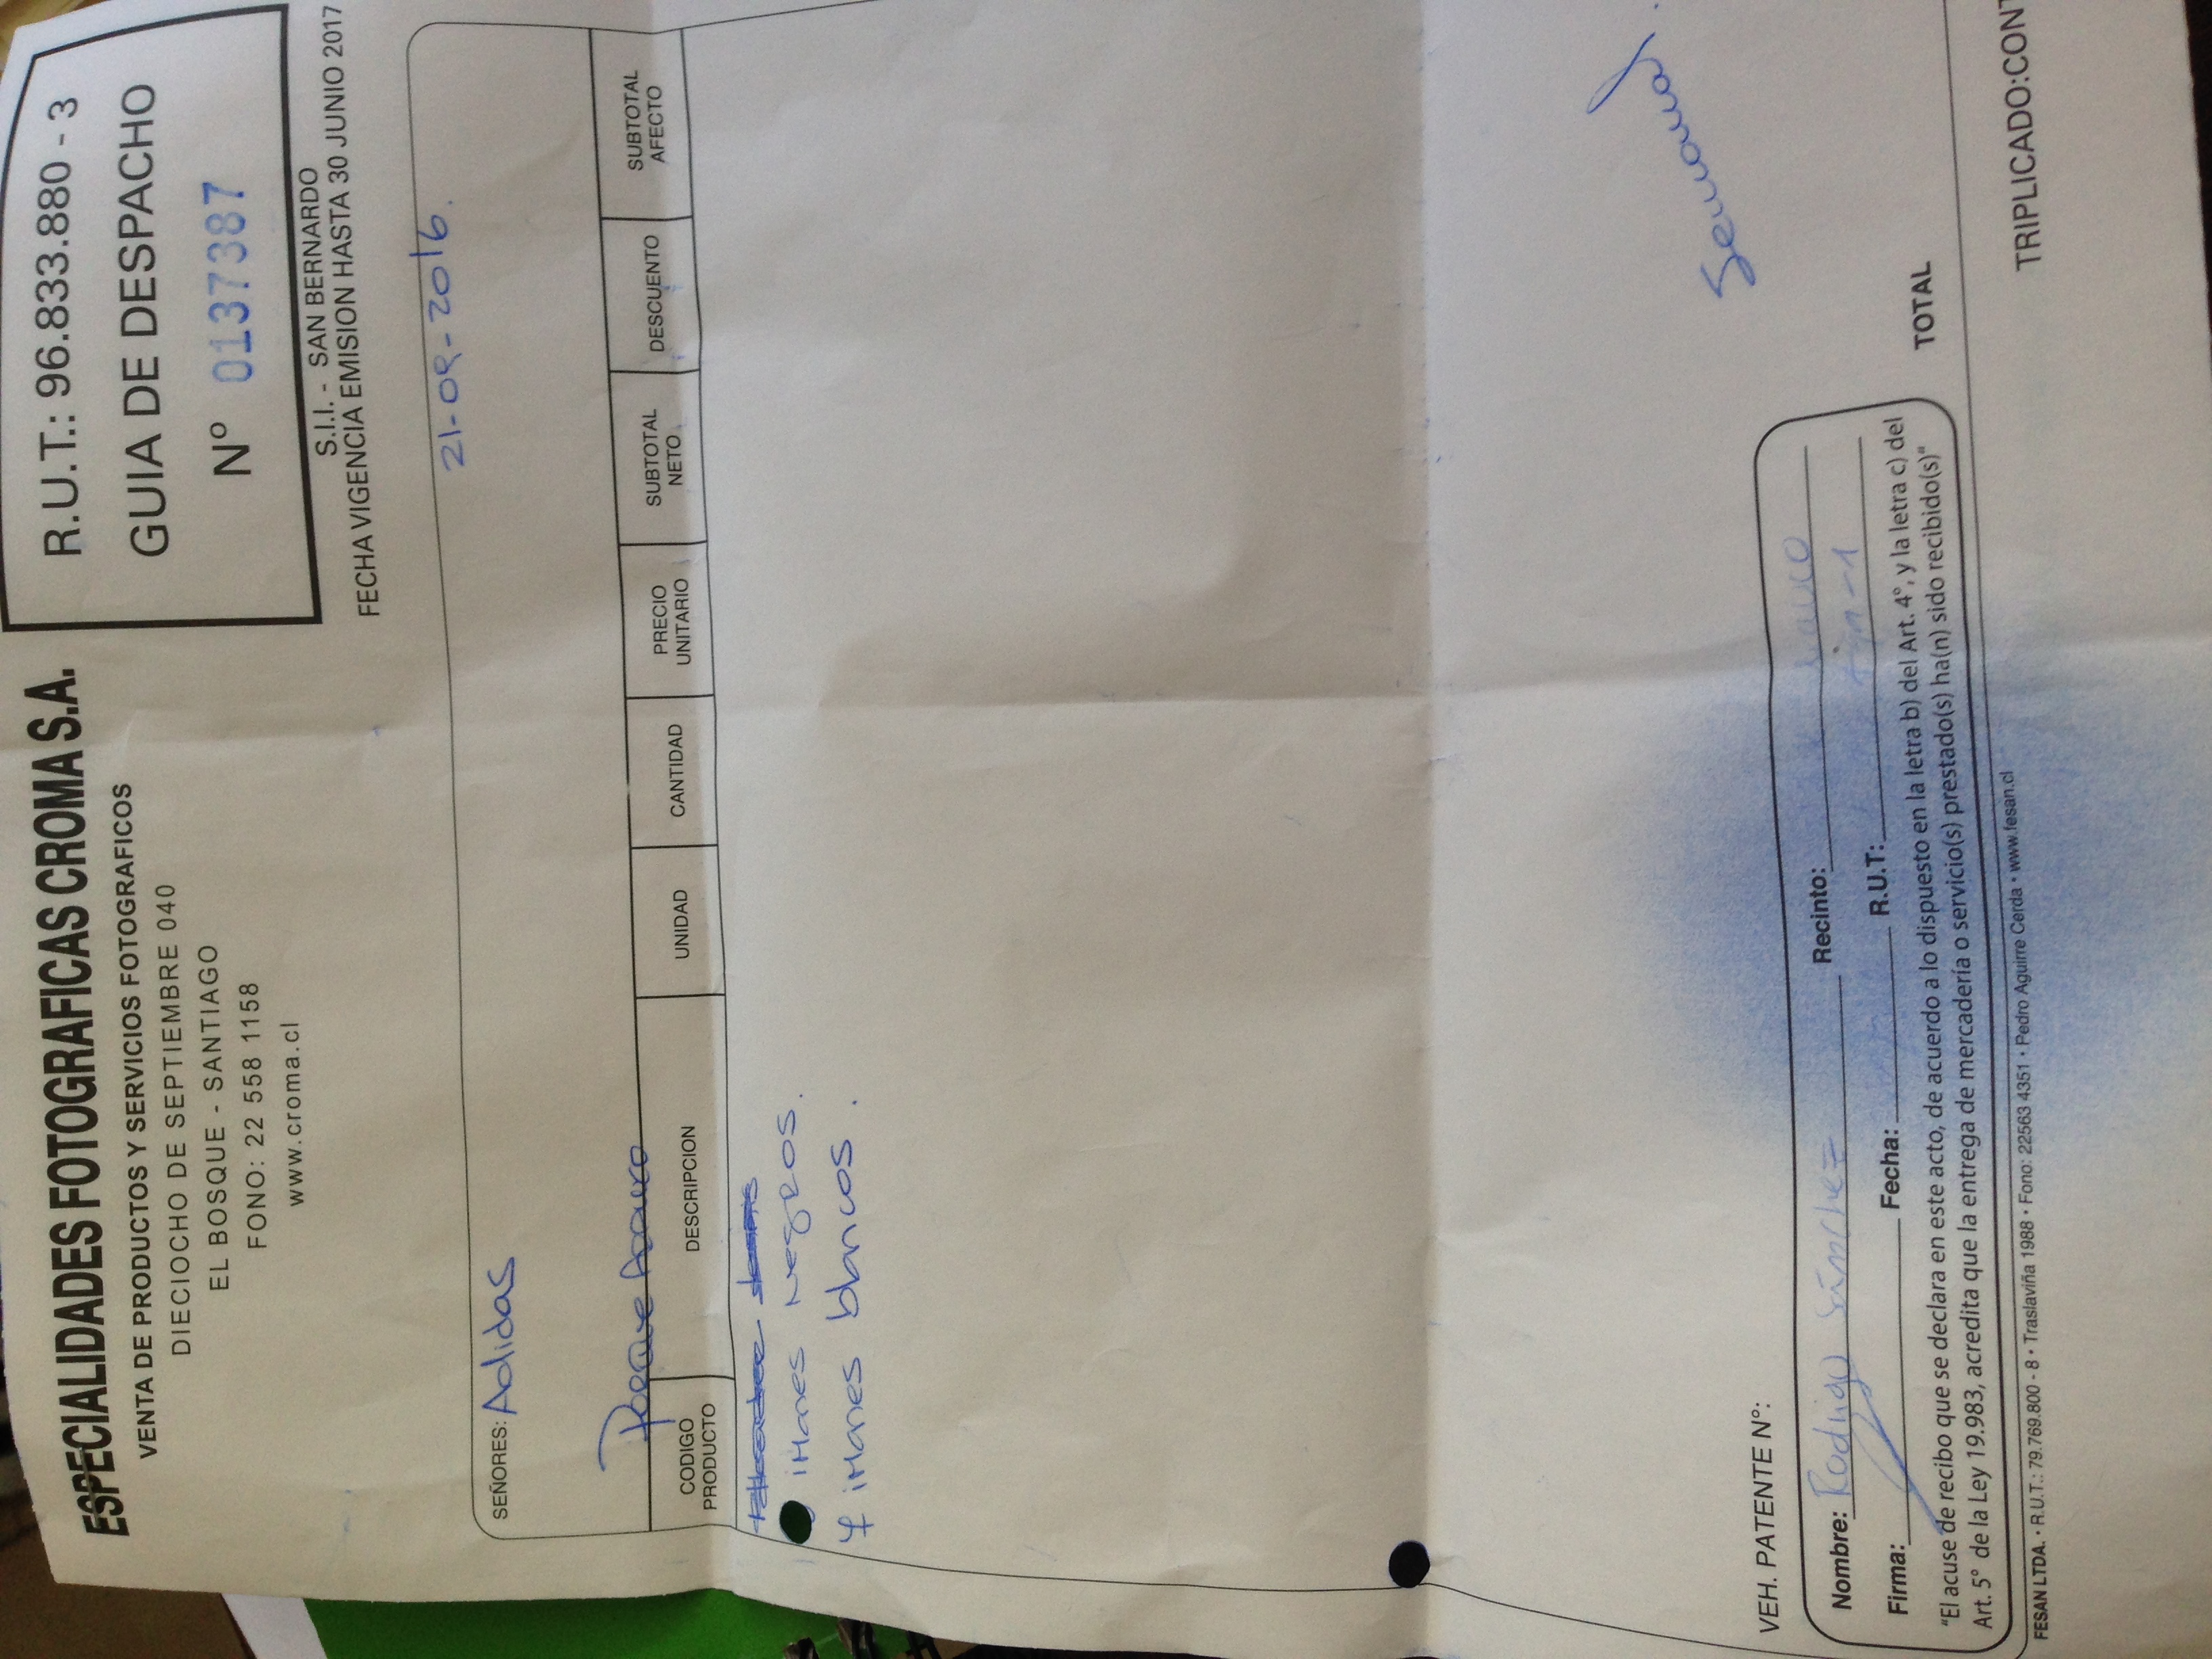 ESPECIALIDADES FOTOGRAFICAS CROMA S.A.
VENTA DE PRODUCTOS Y SERVICIOS FOTOGRAFICOS
DIECIOCHO DE SEPTIEMBRE 040
EL BOSQUE - SANTIAGO
FONO: 22 558 1158
www.croma.cl
R.U.T.: 96.833.880 - 3
GUIA DE DESPACHO
Nº 0137387
S.I.I. - SAN BERNARDO
FECHA VIGENCIA EMISION HASTA 30 JUNIO 2017
21-09-2016.
SEÑORES: Adidas
Parque Arauco
CODIGO PRODUCTO
DESCRIPCION
UNIDAD
CANTIDAD
PRECIO UNITARIO
SUBTOTAL NETO
DESCUENTO
SUBTOTAL AFECTO
imanes Negros.
7 imanes blancos.
Semanal.
VEH. PATENTE Nº:
Nombre: Rodrigo Sánchez
Recinto:
Firma:
Fecha:
R.U.T:
"El acuse de recibo que se declara en este acto, de acuerdo a lo dispuesto en la letra b) del Art. 4º, y la letra c) del
Art. 5º de la Ley 19.983, acredita que la entrega de mercadería o servicio(s) prestado(s) ha(n) sido recibido(s)"
TOTAL
FESAN LTDA. • R.U.T.: 79.769.800 - 8 • Traslaviña 1988 • Fono: 22563 4351 • Pedro Aguirre Cerda • www.fesan.cl
TRIPLICADO:CONT